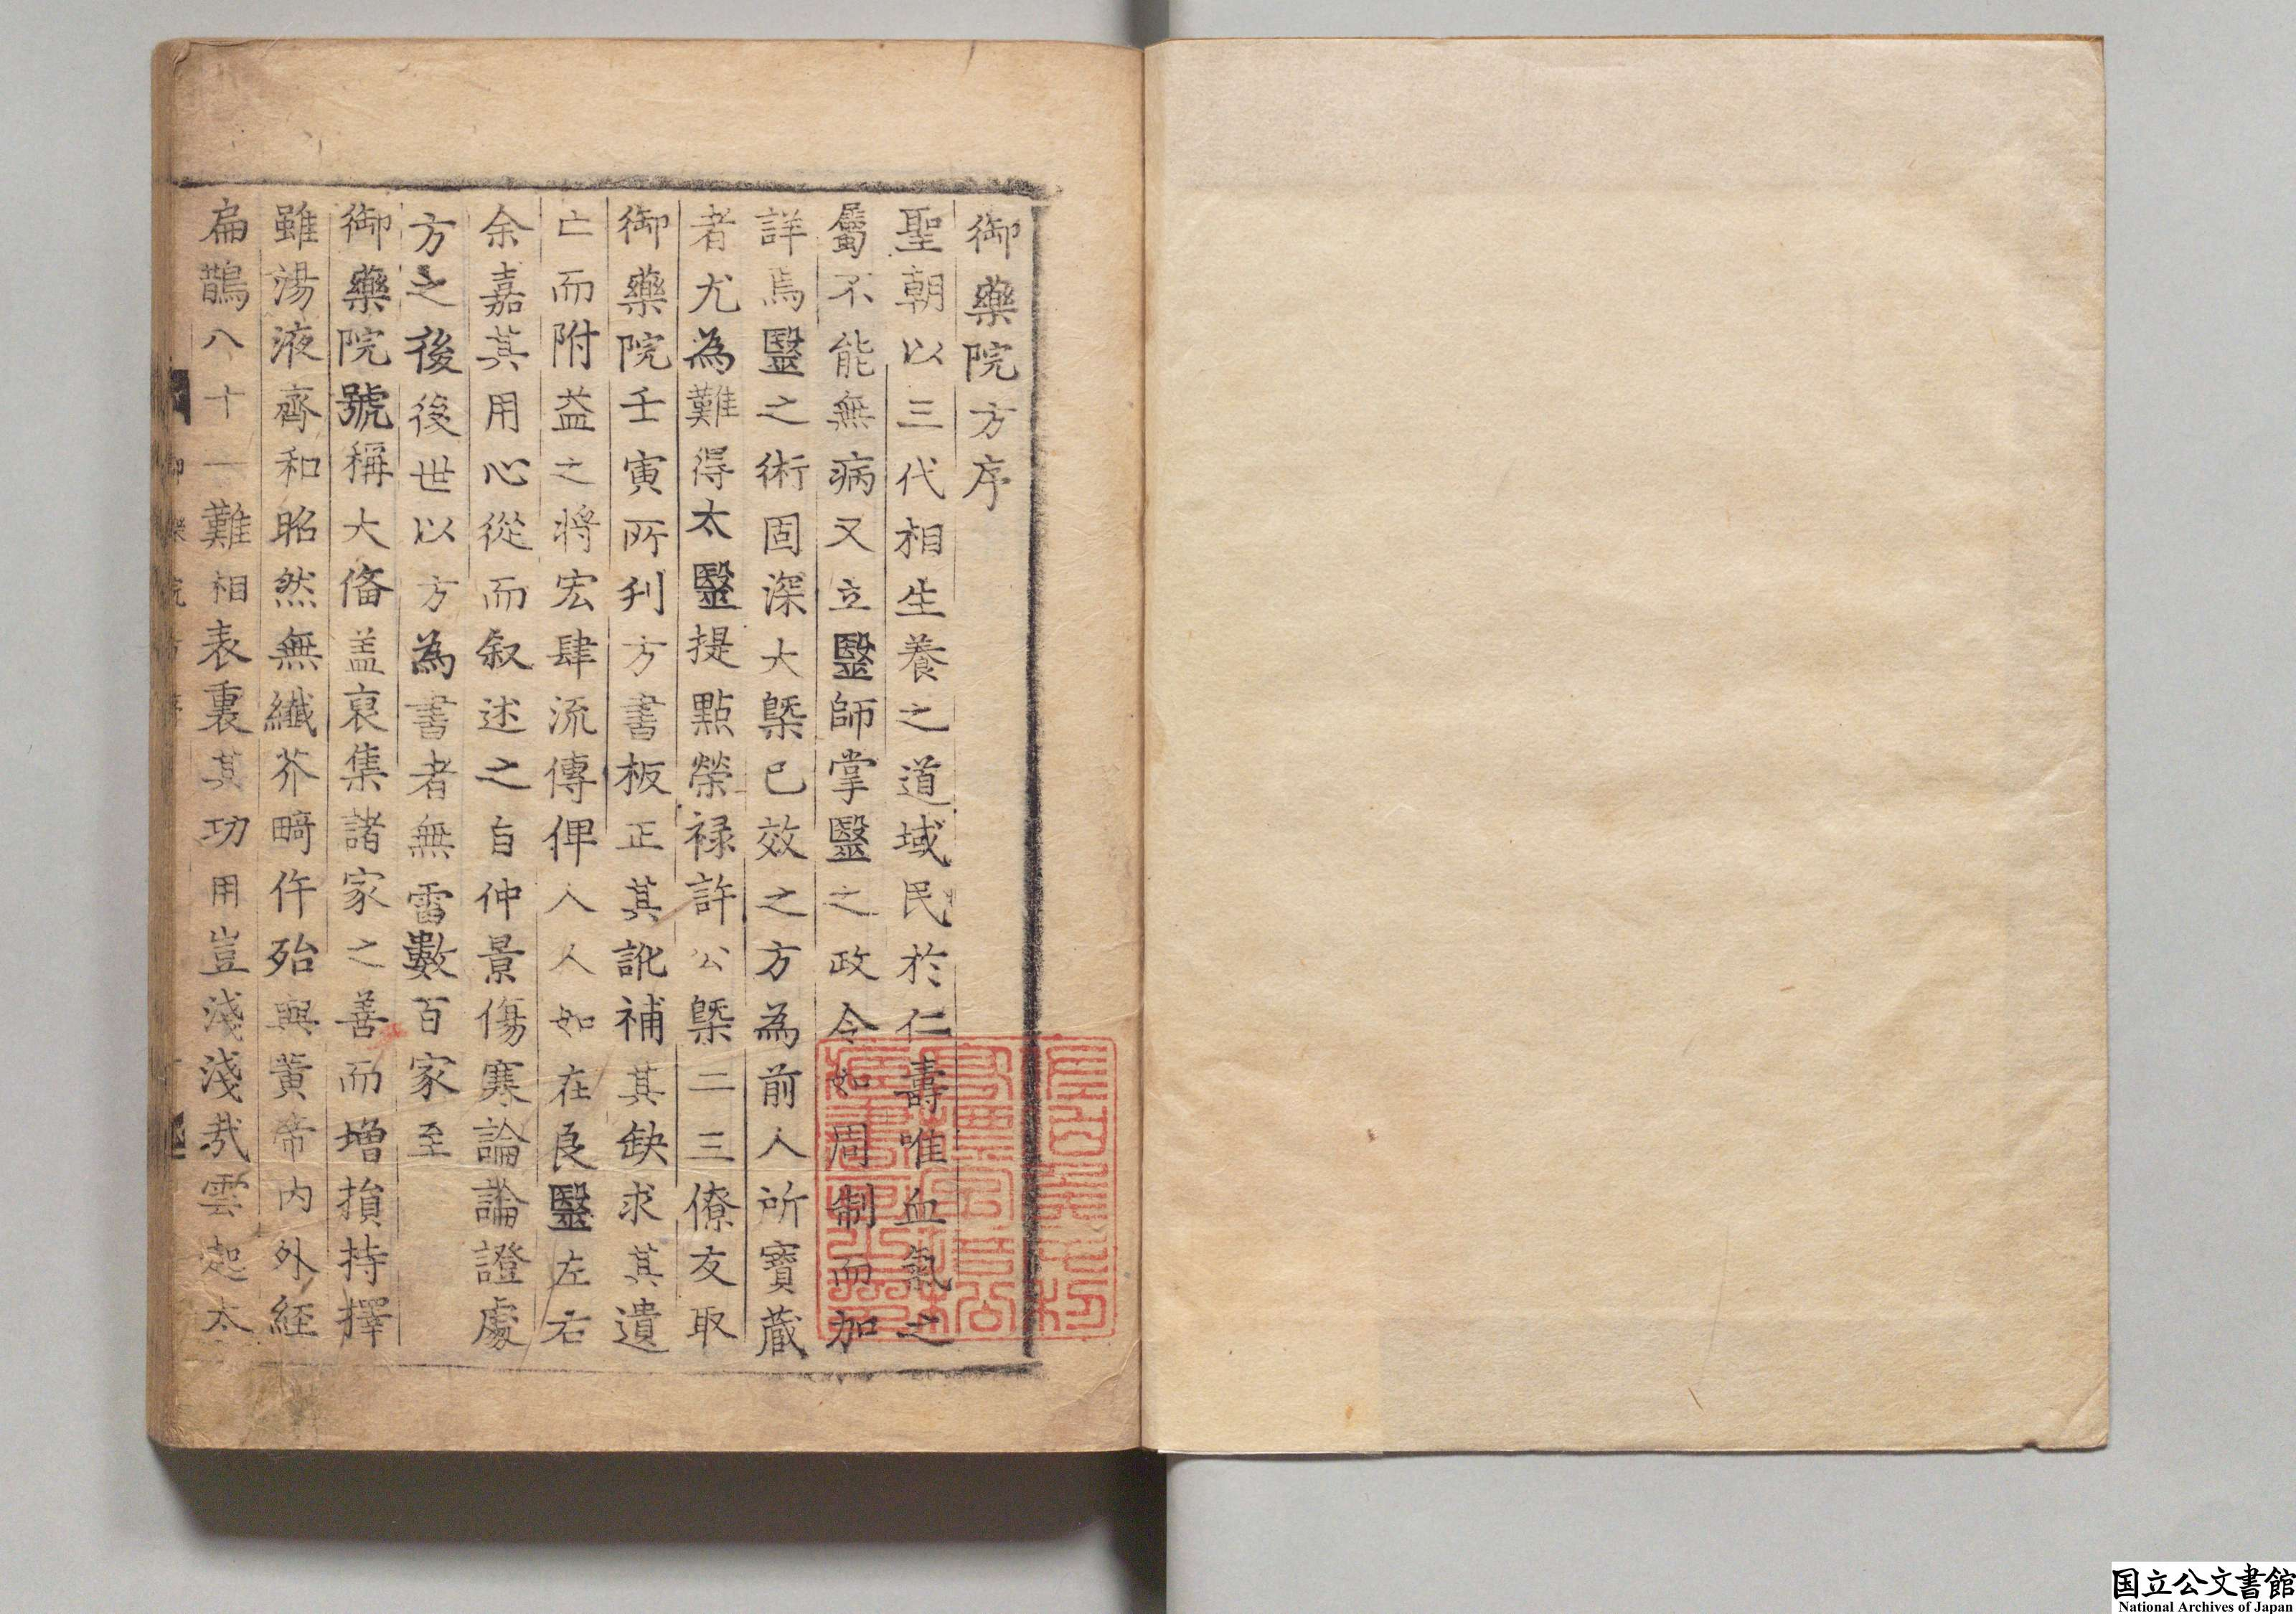 御藥院方序
聖朝以三代相生養之道域民於仁壽唯血氣之
屬不能無病又立醫師掌醫之政令如周制而加
詳焉醫之術固深大槩已效之方為前人所寶藏
者尤為難得太醫提點榮祿許公槩二三僚友取
御藥院壬寅所刋方書板正其訛補其缺求其遺
亡而附益之將宏肆流傳俾人人如在良醫左右
余嘉其用心從而叙述之自仲景傷寒論論證處
方之後後世以方為書者無雷數百家至
御藥院號稱大俻盖裒集諸家之善而增損持擇
雖湯液齊和昭然無纖芥畸仵殆與黃帝内外経
扁鵲八十一難相表裏其功用豈淺淺㦲雲起太
御藥院方序
国立公文書館
National Archives of Japan